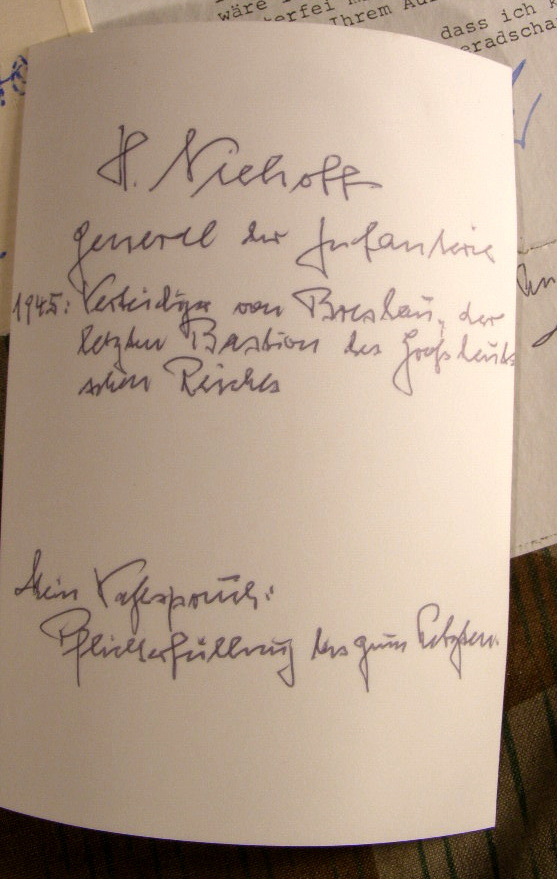 wäre
Ihrem Au
dass ich k
eradscha
H. Niehoff
General der Infanterie
1945: Verteidiger von Breslau, der
letzten Bastion des Großdeut-
schen Reiches
Mein Wahlspruch:
Pflichterfüllung bis zum Letzten.